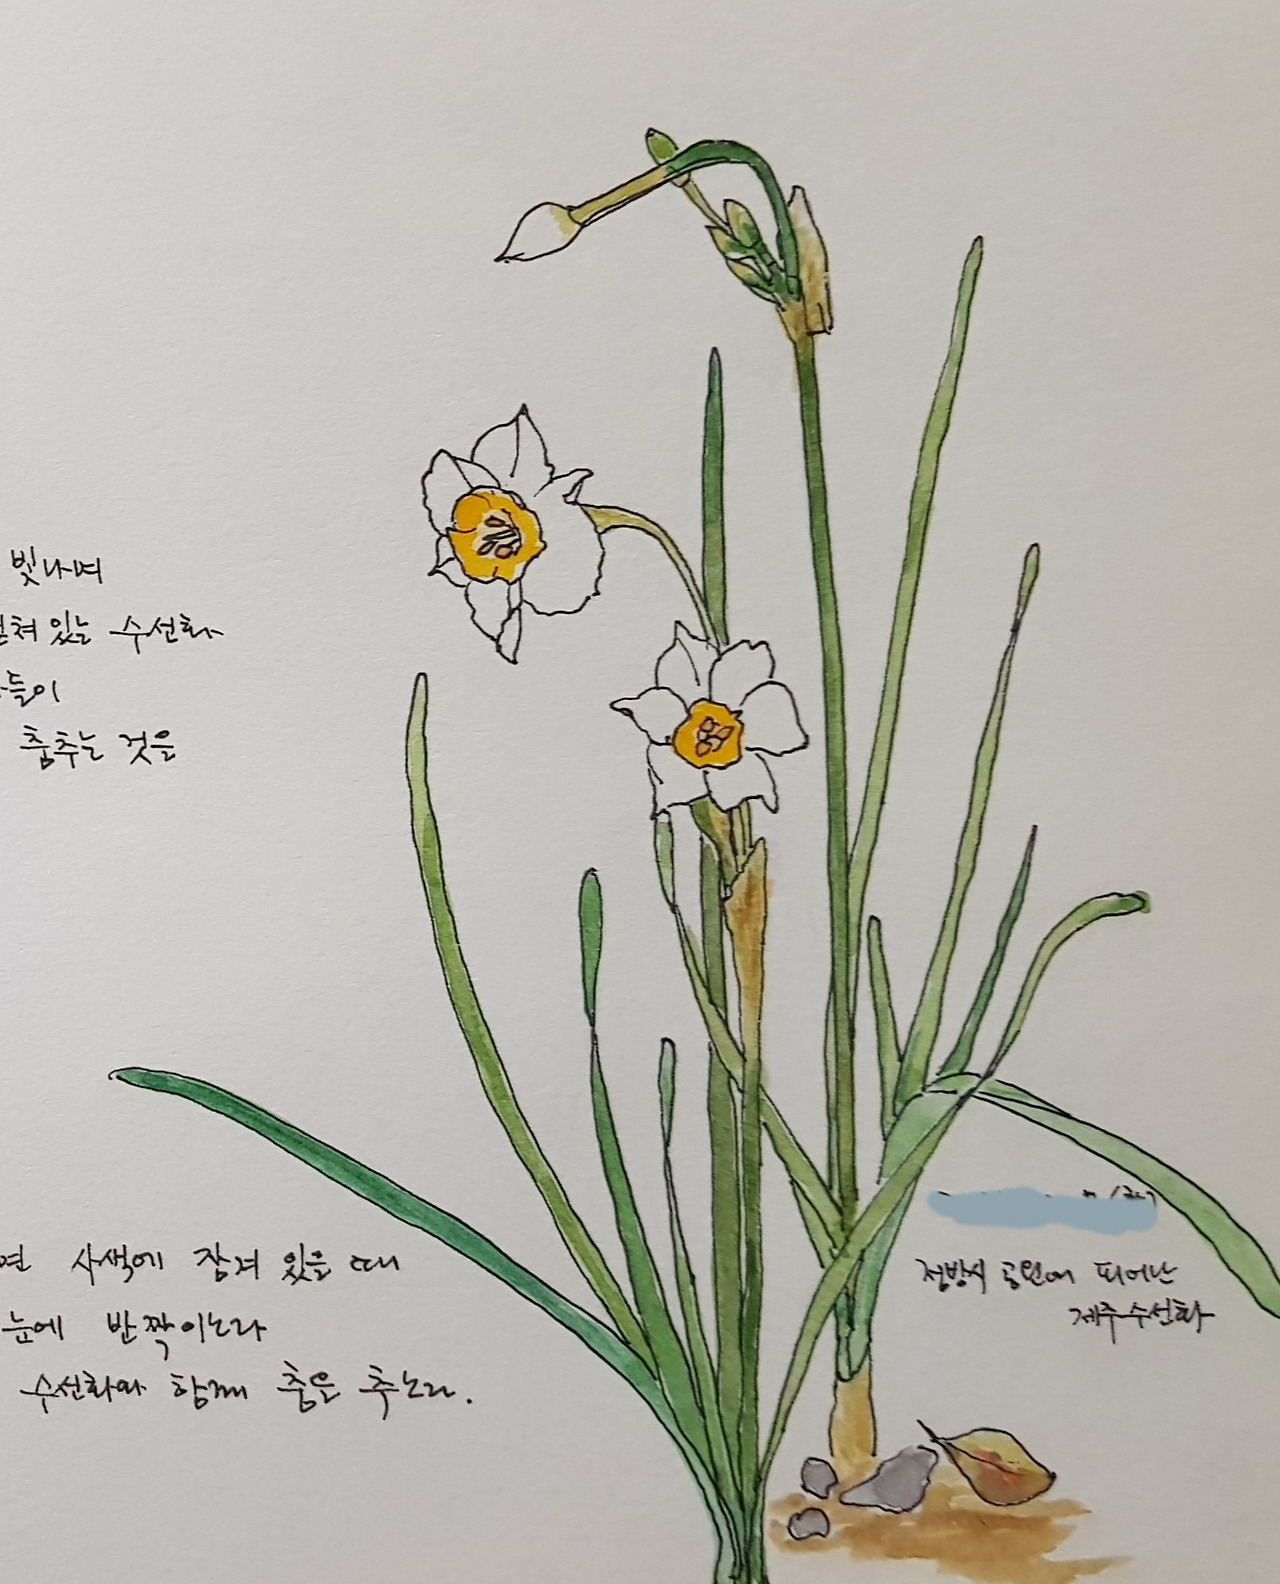 빛나며
펼쳐 있는 수선화
들이
춤추는 것을
사색에 잠겨 있을 때
눈에 반짝이노라
수선화와 함께 춤을 추노라.
공원에 피어난
제주 수선화